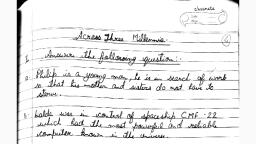 obscurate
Across Three Millennia
Answer the following question:-
a. Philip is a young man, he is in search of work
so that his mother and sisters do not have to
starve.
b. was in control of spaceship CMF-22
which had the most powerful and reliable
computer known in the universe.